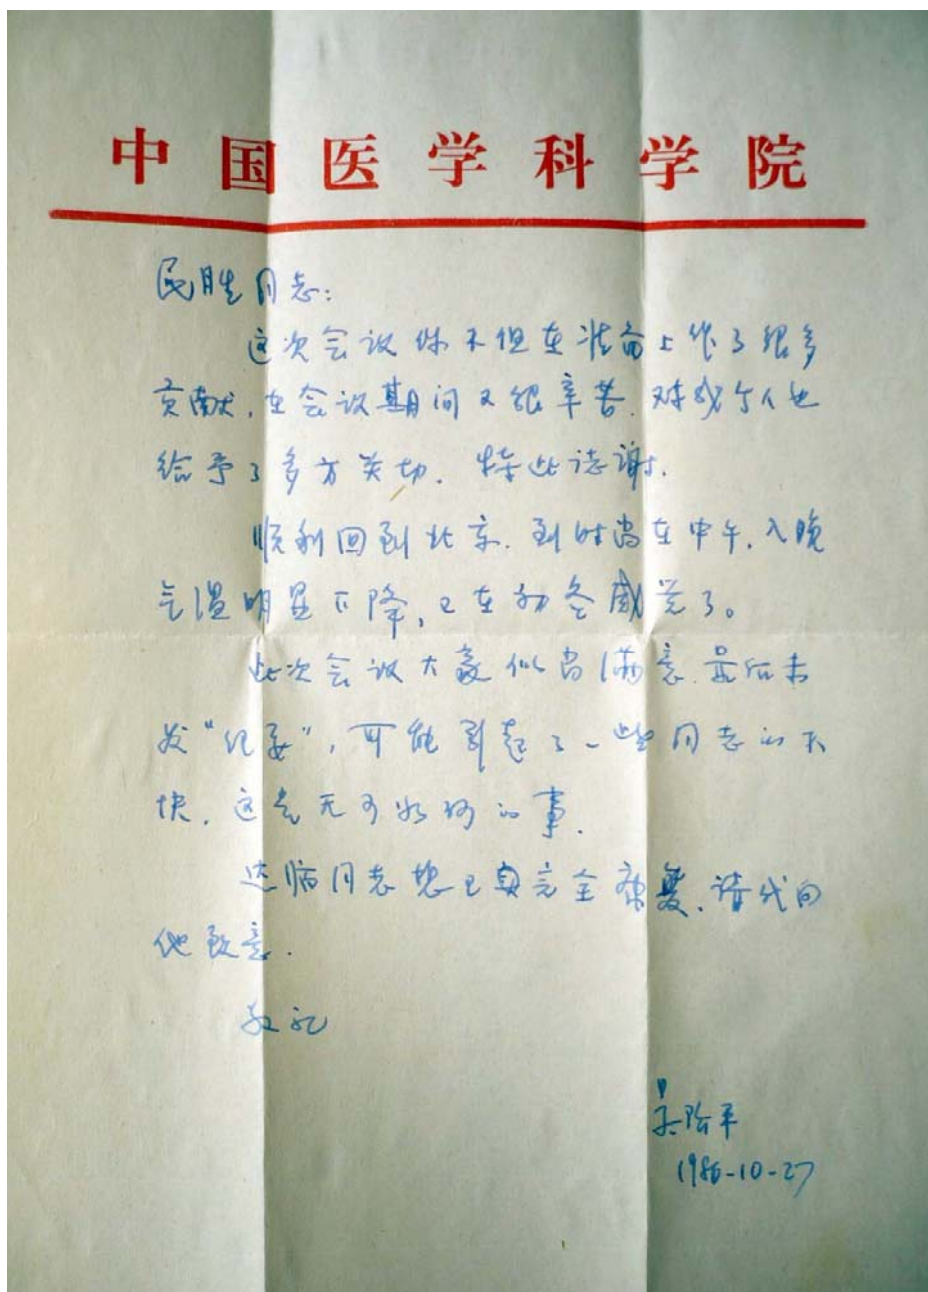 中国医学科学院
民胜同志：
这次会议你不但在准备上作了很多
贡献，在会议期间又很辛苦，对我个人也
给予了多方关切．特此志谢．
顺利回到北京．到时尚在中午，入晚
气温明显下降，已在初冬感觉了。
此次会议大家似尚满意．最后未
发“纪要”，可能引起了一些同志的不
快，这是无可奈何的事．
达临同志想已完全康复．请代向
他致意．
敬礼
吴阶平
1986-10-27